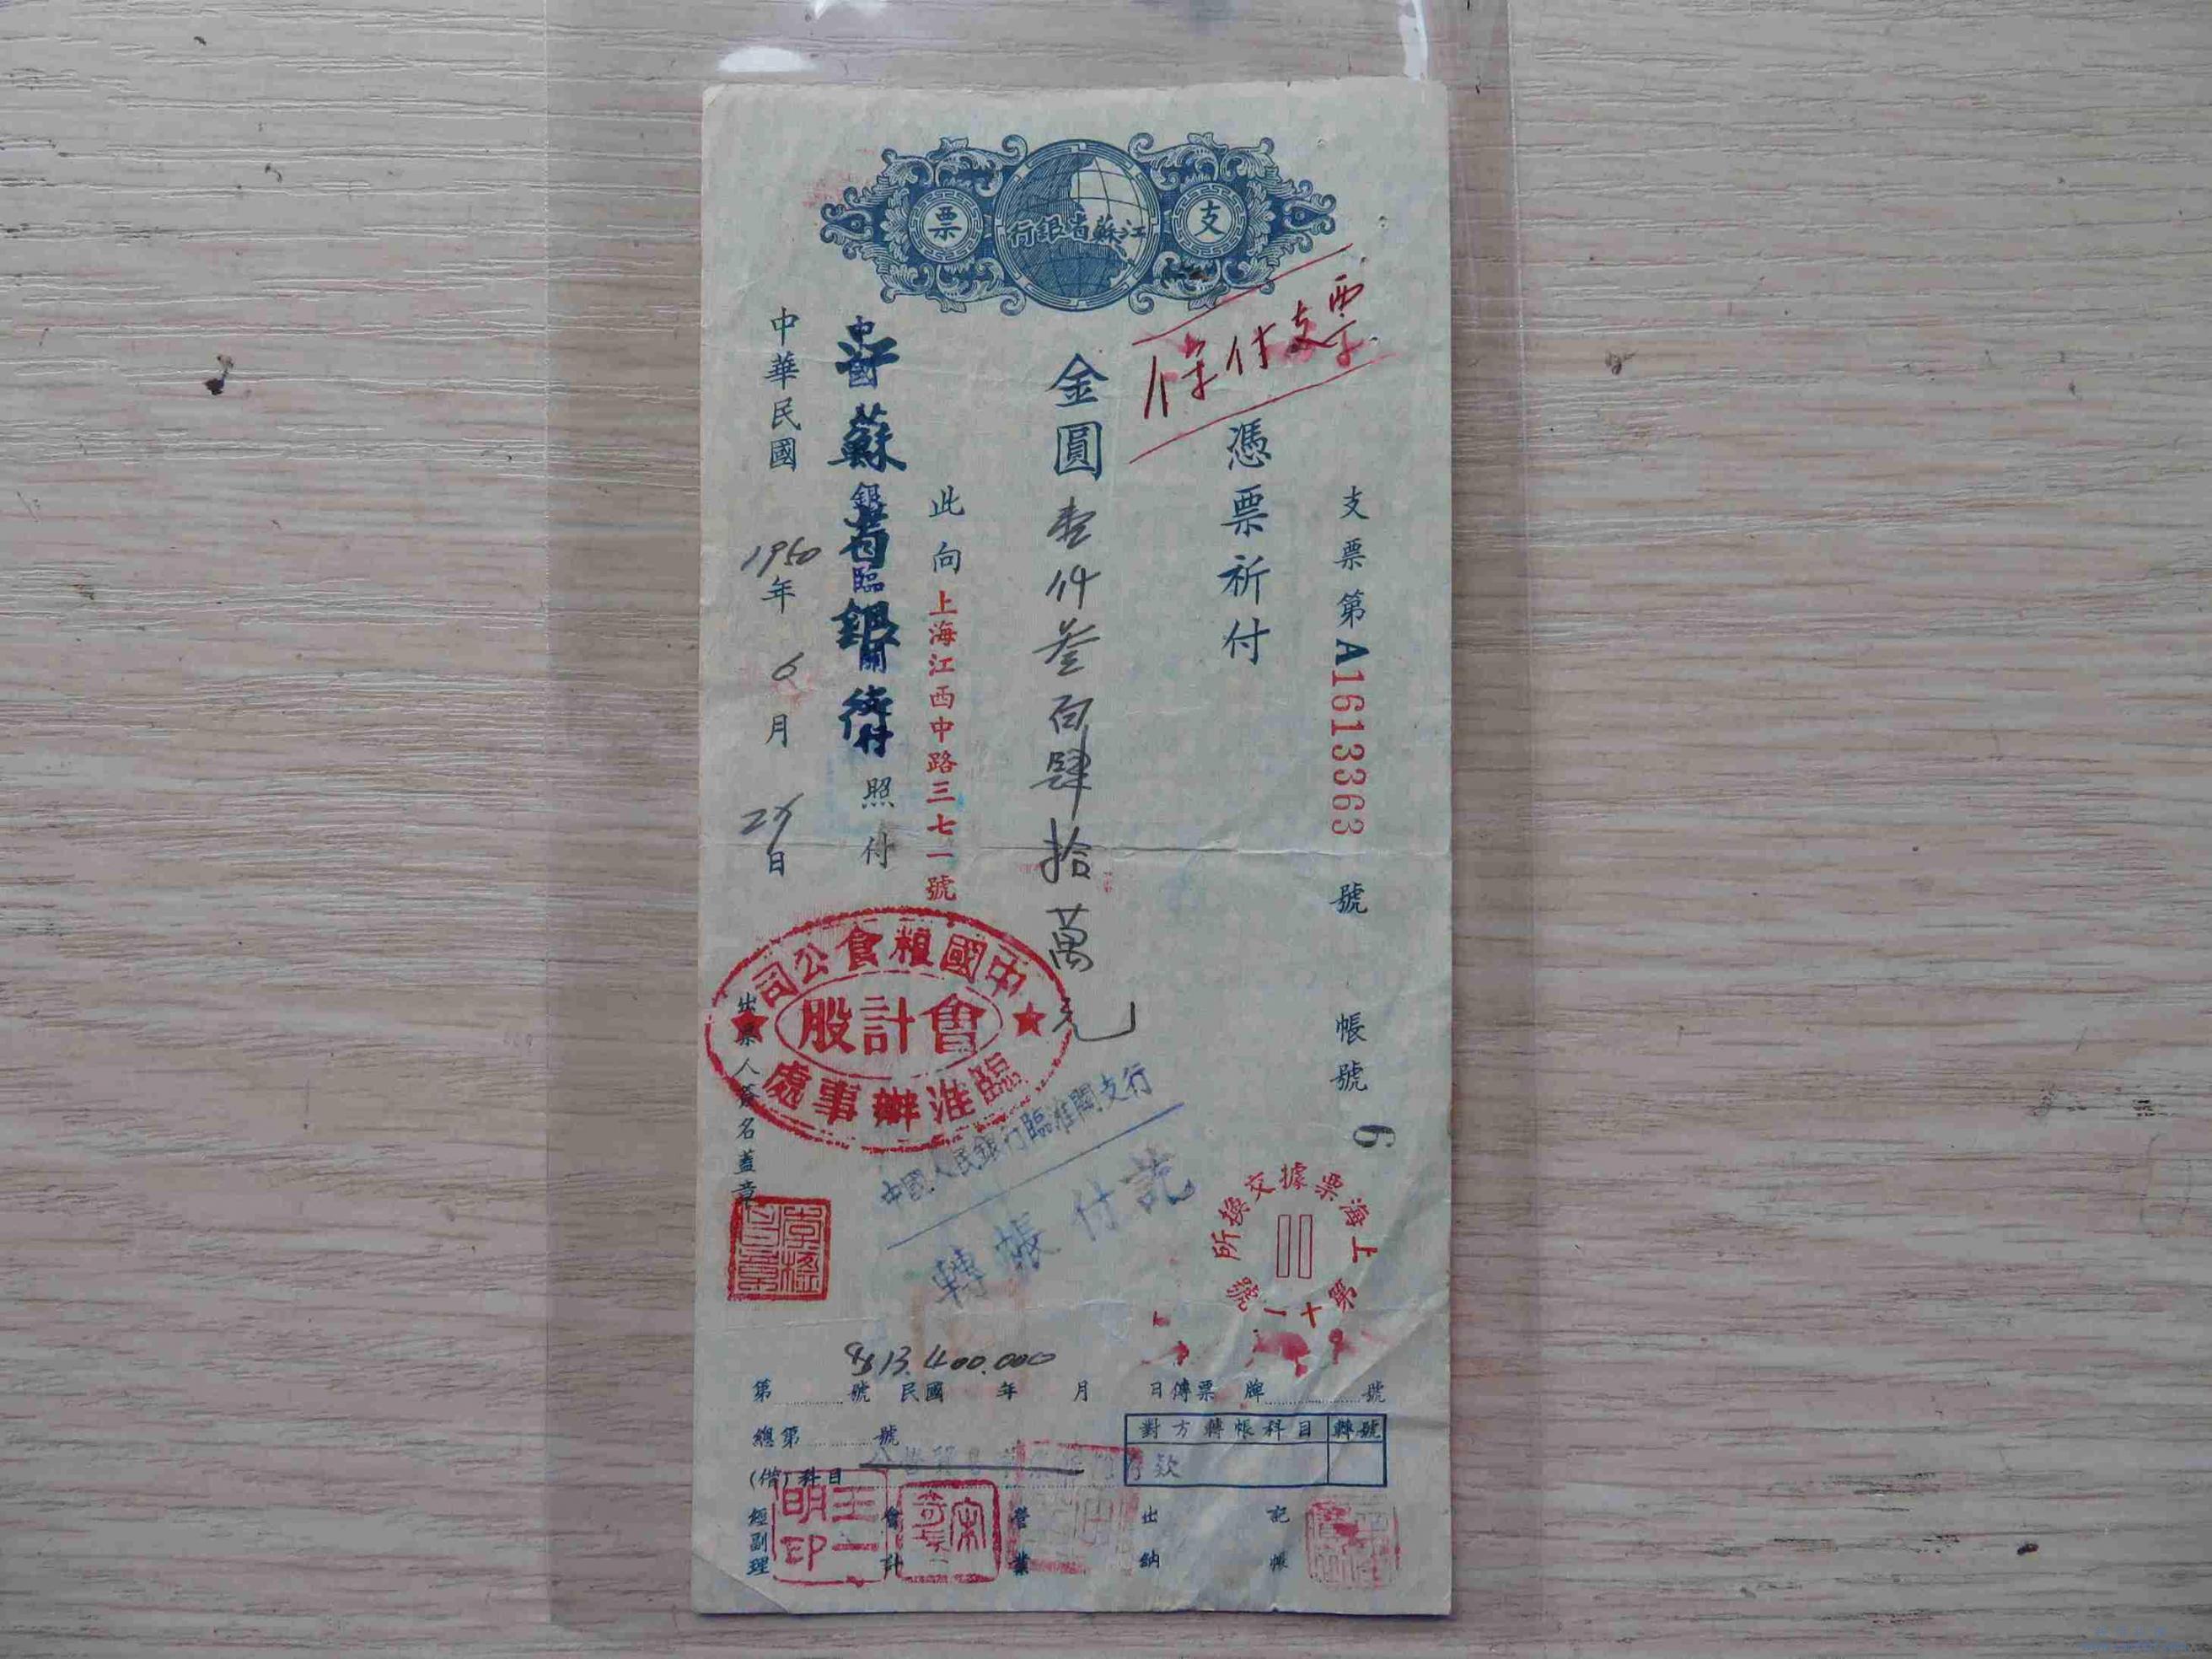 支票
江蘇省銀行
保付支票
支票第A1613363號 帳號 6
憑票祈付
金圓壹仟叁百肆拾萬元
此向上海江西中路三七一號
江蘇省銀行照付
中華民國1950年6月2日
出票人簽名蓋章
中國粮食公司
會計股
臨淮辦事處
中國人民銀行臨淮關支行
轉帳付訖
上海票據交換所
第十一號
13,400.000
第 號 民國 年 月 日傳票 牌 號
總第 號
對方轉帳科目 轉號
(借)科目 存款
經副理 會計 營業 出納 記帳
王一明印